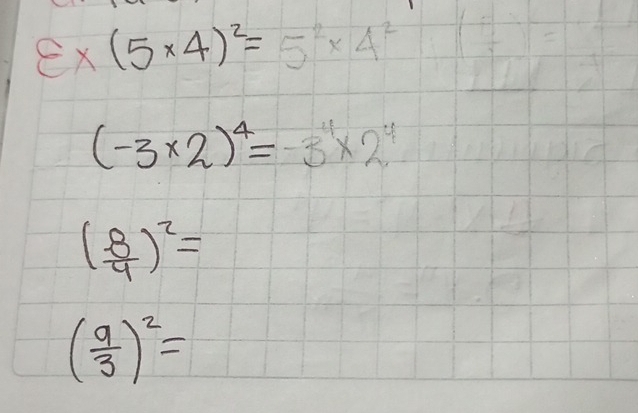 Ex (5×4)²= 5²×4²
(-3×2)⁴= -3⁴×2⁴
(8/4)²=
(9/3)²=